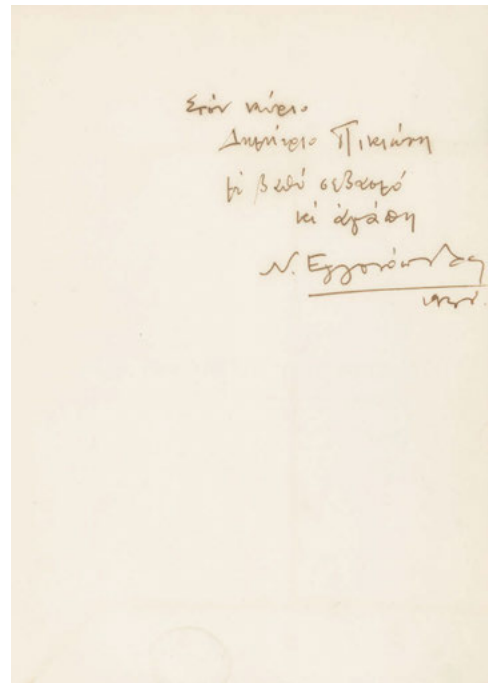 Στὸν κύριο
Δημήτριο Πικιώνη
μὲ βαθὺ σεβασμό
κι ἀγάπη
Ν. Εγγονόπουλος